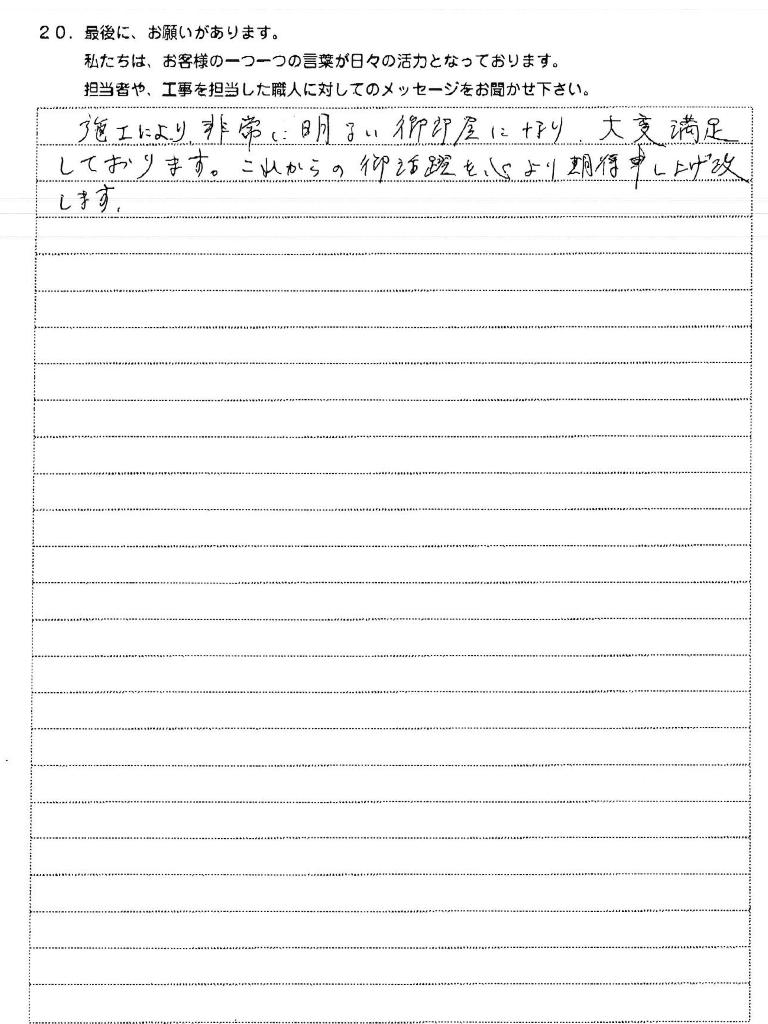 20. 最後に、お願いがあります。
私たちは、お客様の一つ一つの言葉が日々の活力となっております。
担当者や、工事を担当した職人に対してのメッセージをお聞かせ下さい。
施工により、非常に明るい御部屋になり 大変満足
しております。これからの御活躍を心より期待申し上げ致
します。